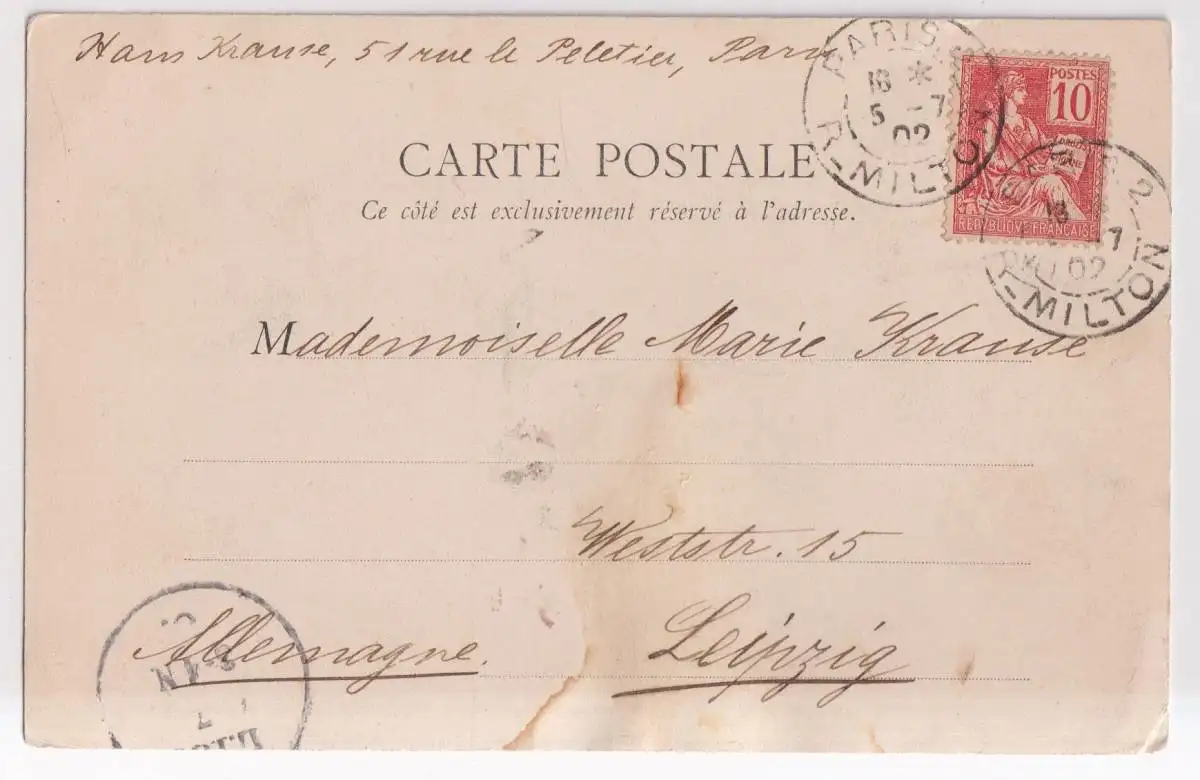 Hans Krause, 51 rue le Peletier, Paris
PARIS
18 *
5 -7
02
R-MILTON
POSTES
10
REPUBLIQUE FRANÇAISE
CARTE POSTALE
Ce côté est exclusivement réservé à l'adresse.
2
18
-7
02
R-MILTON
Mademoiselle Marie Krause
Weststr. 15
Allemagne. Leipzig